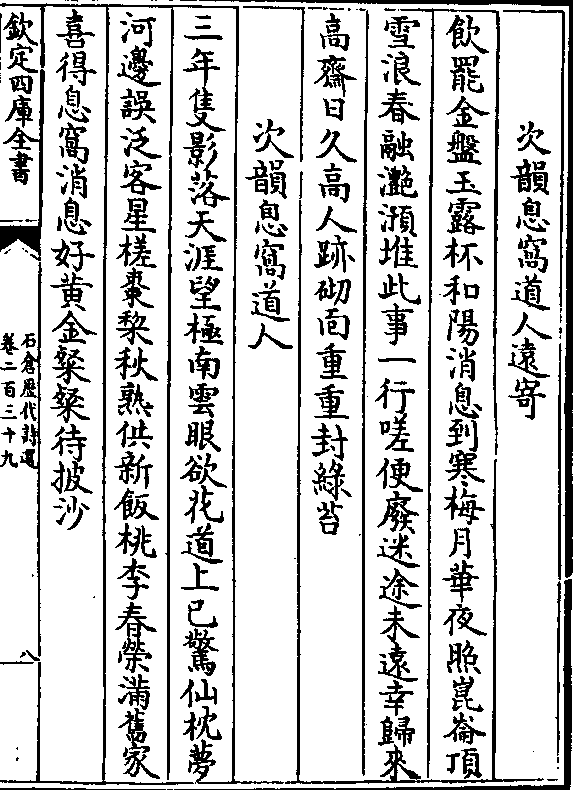 次韻息窩道人遠寄
飲罷金盤玉露杯和陽消息到寒梅月華夜照崑崙頂
雪浪春融灔澦堆此事一行嗟便廢迷途未遠幸歸來
高齋日久高人跡砌面重重封綠苔
次韻息窩道人
三年隻影落天涯望極南雲眼欲花道上已驚仙枕夢
河邊誤泛客星槎棗棃秋熟供新飯桃李春榮滿舊家
喜得息窩消息好黄金粲粲待披沙
欽定四庫全書
石倉歷代詩選
卷二百三十九
八